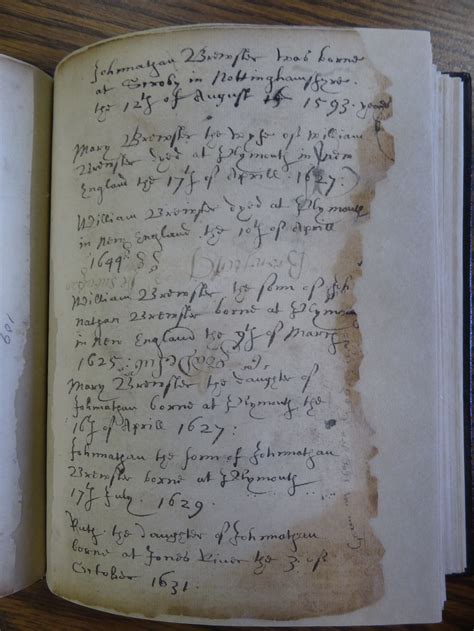 Johnnathan Brewster was borne
at Scroby in Nottinghamshyre.
the 12th of August the 1593. yeare
Mary Brewster the wyfe of William
Brewster dyed at Plymouth in New
England the 17th of Aprill. 1627.
William Brewster dyed at Plymouth
in New England the 10th of Aprill
1644
William Brewster the sonn of Joh
nathan Brewster borne at Plymou
in New England the 9th of March
1625:
Mary Brewster the daughter of
Johnnathan borne at Plymouth the
16th of Aprill 1627:
Johnnathan the sonn of Johnnathan
Brewster borne at Plymouth
17th July. 1629.
Ruth the daughter of Johnnathan
borne at Jones River the 3 of
October 1631.